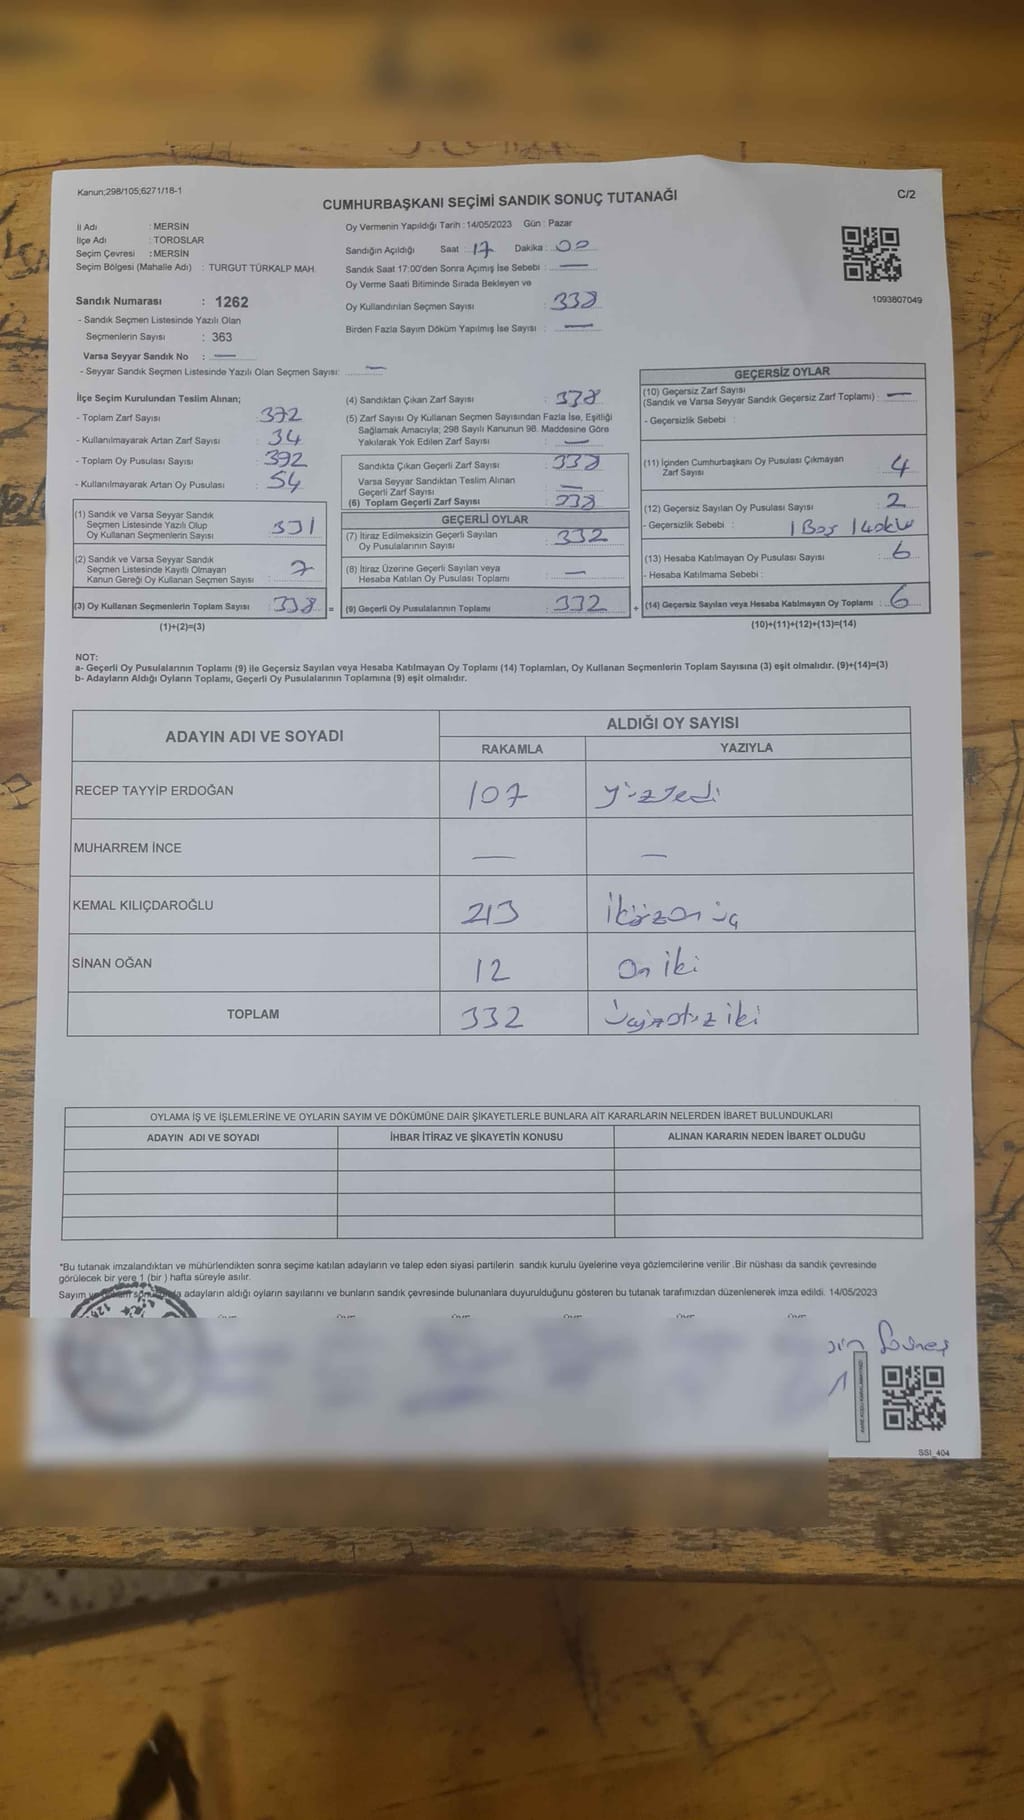 Kanun;298/105;6271/18-1
CUMHURBAŞKANI SEÇİMİ SANDIK SONUÇ TUTANAĞI
C/2
İl Adı : MERSİN
İlçe Adı : TOROSLAR
Seçim Çevresi : MERSİN
Seçim Bölgesi (Mahalle Adı) : TURGUT TÜRKALP MAH.
Sandık Numarası : 1262
- Sandık Seçmen Listesinde Yazılı Olan
Seçmenlerin Sayısı : 363
Varsa Seyyar Sandık No : —
- Seyyar Sandık Seçmen Listesinde Yazılı Olan Seçmen Sayısı: —
Oy Vermenin Yapıldığı Tarih : 14/05/2023 Gün : Pazar
Sandığın Açıldığı Saat : 17 Dakika : 00
Sandık Saat 17:00'den Sonra Açımış İse Sebebi : —
Oy Verme Saati Bitiminde Sırada Bekleyen ve
Oy Kullandırılan Seçmen Sayısı : 338
Birden Fazla Sayım Döküm Yapılmış İse Sayısı : —
1093807049
İlçe Seçim Kurulundan Teslim Alınan;
- Toplam Zarf Sayısı : 372
- Kullanılmayarak Artan Zarf Sayısı : 34
- Toplam Oy Pusulası Sayısı : 392
- Kullanılmayarak Artan Oy Pusulası : 54
(1) Sandık ve Varsa Seyyar Sandık
Seçmen Listesinde Yazılı Olup
Oy Kullanan Seçmenlerin Sayısı : 331
(2) Sandık ve Varsa Seyyar Sandık
Seçmen Listesinde Kayıtlı Olmayan
Kanun Gereği Oy Kullanan Seçmen Sayısı : 7
(3) Oy Kullanan Seçmenlerin Toplam Sayısı : 338 =
(1)+(2)=(3)
(4) Sandıktan Çıkan Zarf Sayısı : 338
(5) Zarf Sayısı Oy Kullanan Seçmen Sayısından Fazla İse, Eşitliği
Sağlamak Amacıyla; 298 Sayılı Kanunun 98. Maddesine Göre
Yakılarak Yok Edilen Zarf Sayısı : —
Sandıkta Çıkan Geçerli Zarf Sayısı : 338
Varsa Seyyar Sandıktan Teslim Alınan
Geçerli Zarf Sayısı : —
(6) Toplam Geçerli Zarf Sayısı : 338
GEÇERLİ OYLAR
(7) İtiraz Edilmeksizin Geçerli Sayılan
Oy Pusulalarının Sayısı : 332
(8) İtiraz Üzerine Geçerli Sayılan veya
Hesaba Katılan Oy Pusulası Toplamı : —
(9) Geçerli Oy Pusulalarının Toplamı : 332 +
GEÇERSİZ OYLAR
(10) Geçersiz Zarf Sayısı
(Sandık ve Varsa Seyyar Sandık Geçersiz Zarf Toplamı) : —
- Geçersizlik Sebebi :
(11) İçinden Cumhurbaşkanı Oy Pusulası Çıkmayan
Zarf Sayısı : 4
(12) Geçersiz Sayılan Oy Pusulası Sayısı : 2
- Geçersizlik Sebebi : 1 Boş 1
(13) Hesaba Katılmayan Oy Pusulası Sayısı : 6
- Hesaba Katılmama Sebebi :
(14) Geçersiz Sayılan veya Hesaba Katılmayan Oy Toplamı : 6
(10)+(11)+(12)+(13)=(14)
NOT:
a- Geçerli Oy Pusulalarının Toplamı (9) ile Geçersiz Sayılan veya Hesaba Katılmayan Oy Toplamı (14) Toplamları, Oy Kullanan Seçmenlerin Toplam Sayısına (3) eşit olmalıdır. (9)+(14)=(3)
b- Adayların Aldığı Oyların Toplamı, Geçerli Oy Pusulalarının Toplamına (9) eşit olmalıdır.
ADAYIN ADI VE SOYADI
ALDIĞI OY SAYISI
RAKAMLA YAZIYLA
RECEP TAYYİP ERDOĞAN 107 yüzyedi
MUHARREM İNCE — —
KEMAL KILIÇDAROĞLU 213 ikiyüzonüç
SİNAN OĞAN 12 On iki
TOPLAM 332 üçyüzotuziki
OYLAMA İŞ VE İŞLEMLERİNE VE OYLARIN SAYIM VE DÖKÜMÜNE DAİR ŞİKAYETLERLE BUNLARA AİT KARARLARIN NELERDEN İBARET BULUNDUKLARI
ADAYIN ADI VE SOYADI İHBAR İTİRAZ VE ŞİKAYETİN KONUSU ALINAN KARARIN NEDEN İBARET OLDUĞU
*Bu tutanak imzalandıktan ve mühürlendikten sonra seçime katılan adayların ve talep eden siyasi partilerin sandık kurulu üyelerine veya gözlemcilerine verilir .Bir nüshası da sandık çevresinde
görülecek bir yere 1 (bir ) hafta süreyle asılır.
Sayım ve döküm sonunda adayların aldığı oyların sayılarını ve bunların sandık çevresinde bulunanlara duyurulduğunu gösteren bu tutanak tarafımızdan düzenlenerek imza edildi. 14/05/2023
SSI_404